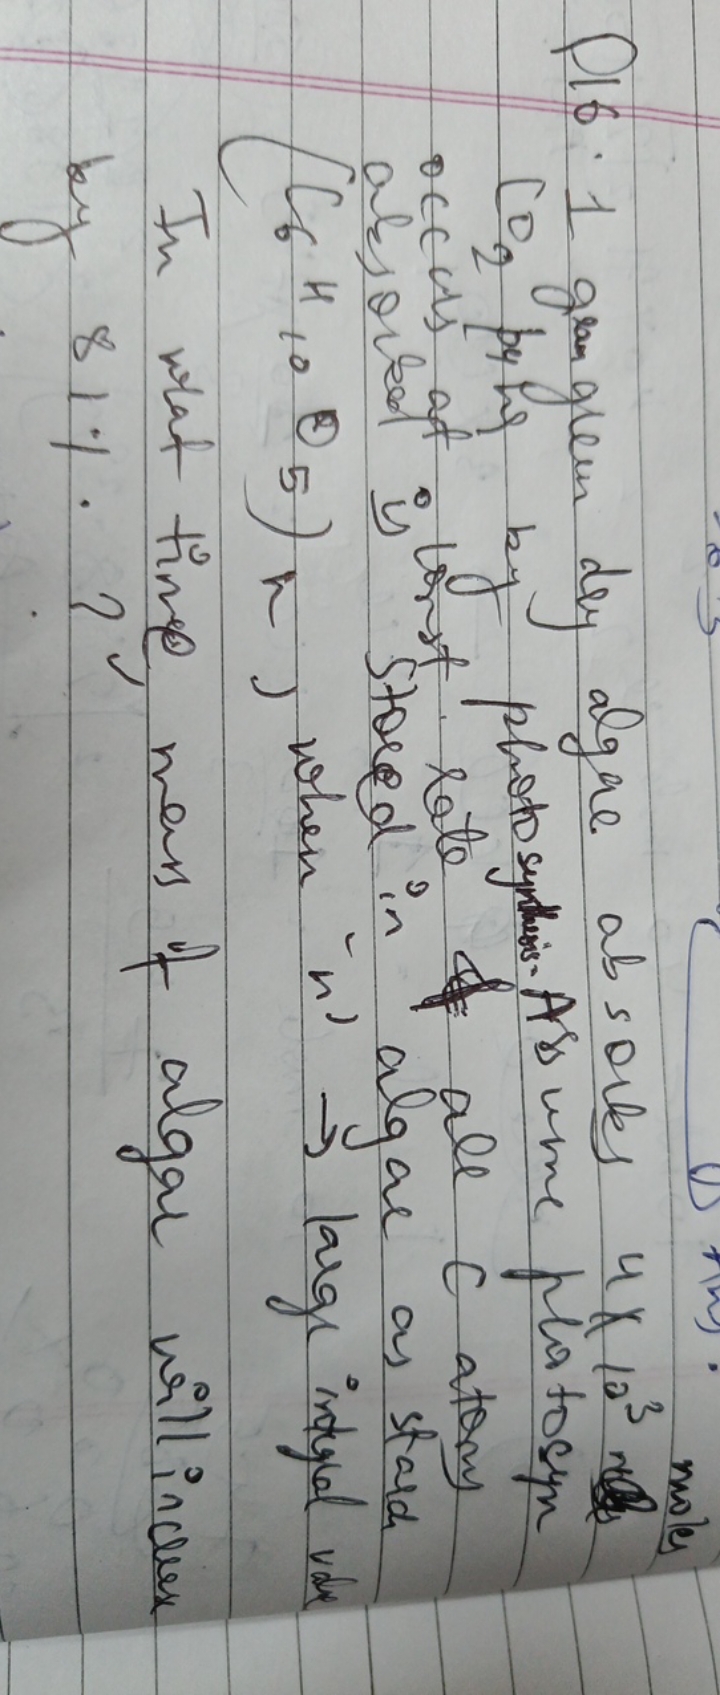 Q16. 1 gram green dry algae absorbs 4 x 10³ moles
CO₂ per hr by photosynthesis. Assume photosyn
occurs at const. rate & all C atoms
absorbed is stored in algae as starch
(C₆H₁₀O₅)n, when 'n' → large integral value
In what time mass of algae will increase
by 81%. ?
Ans.